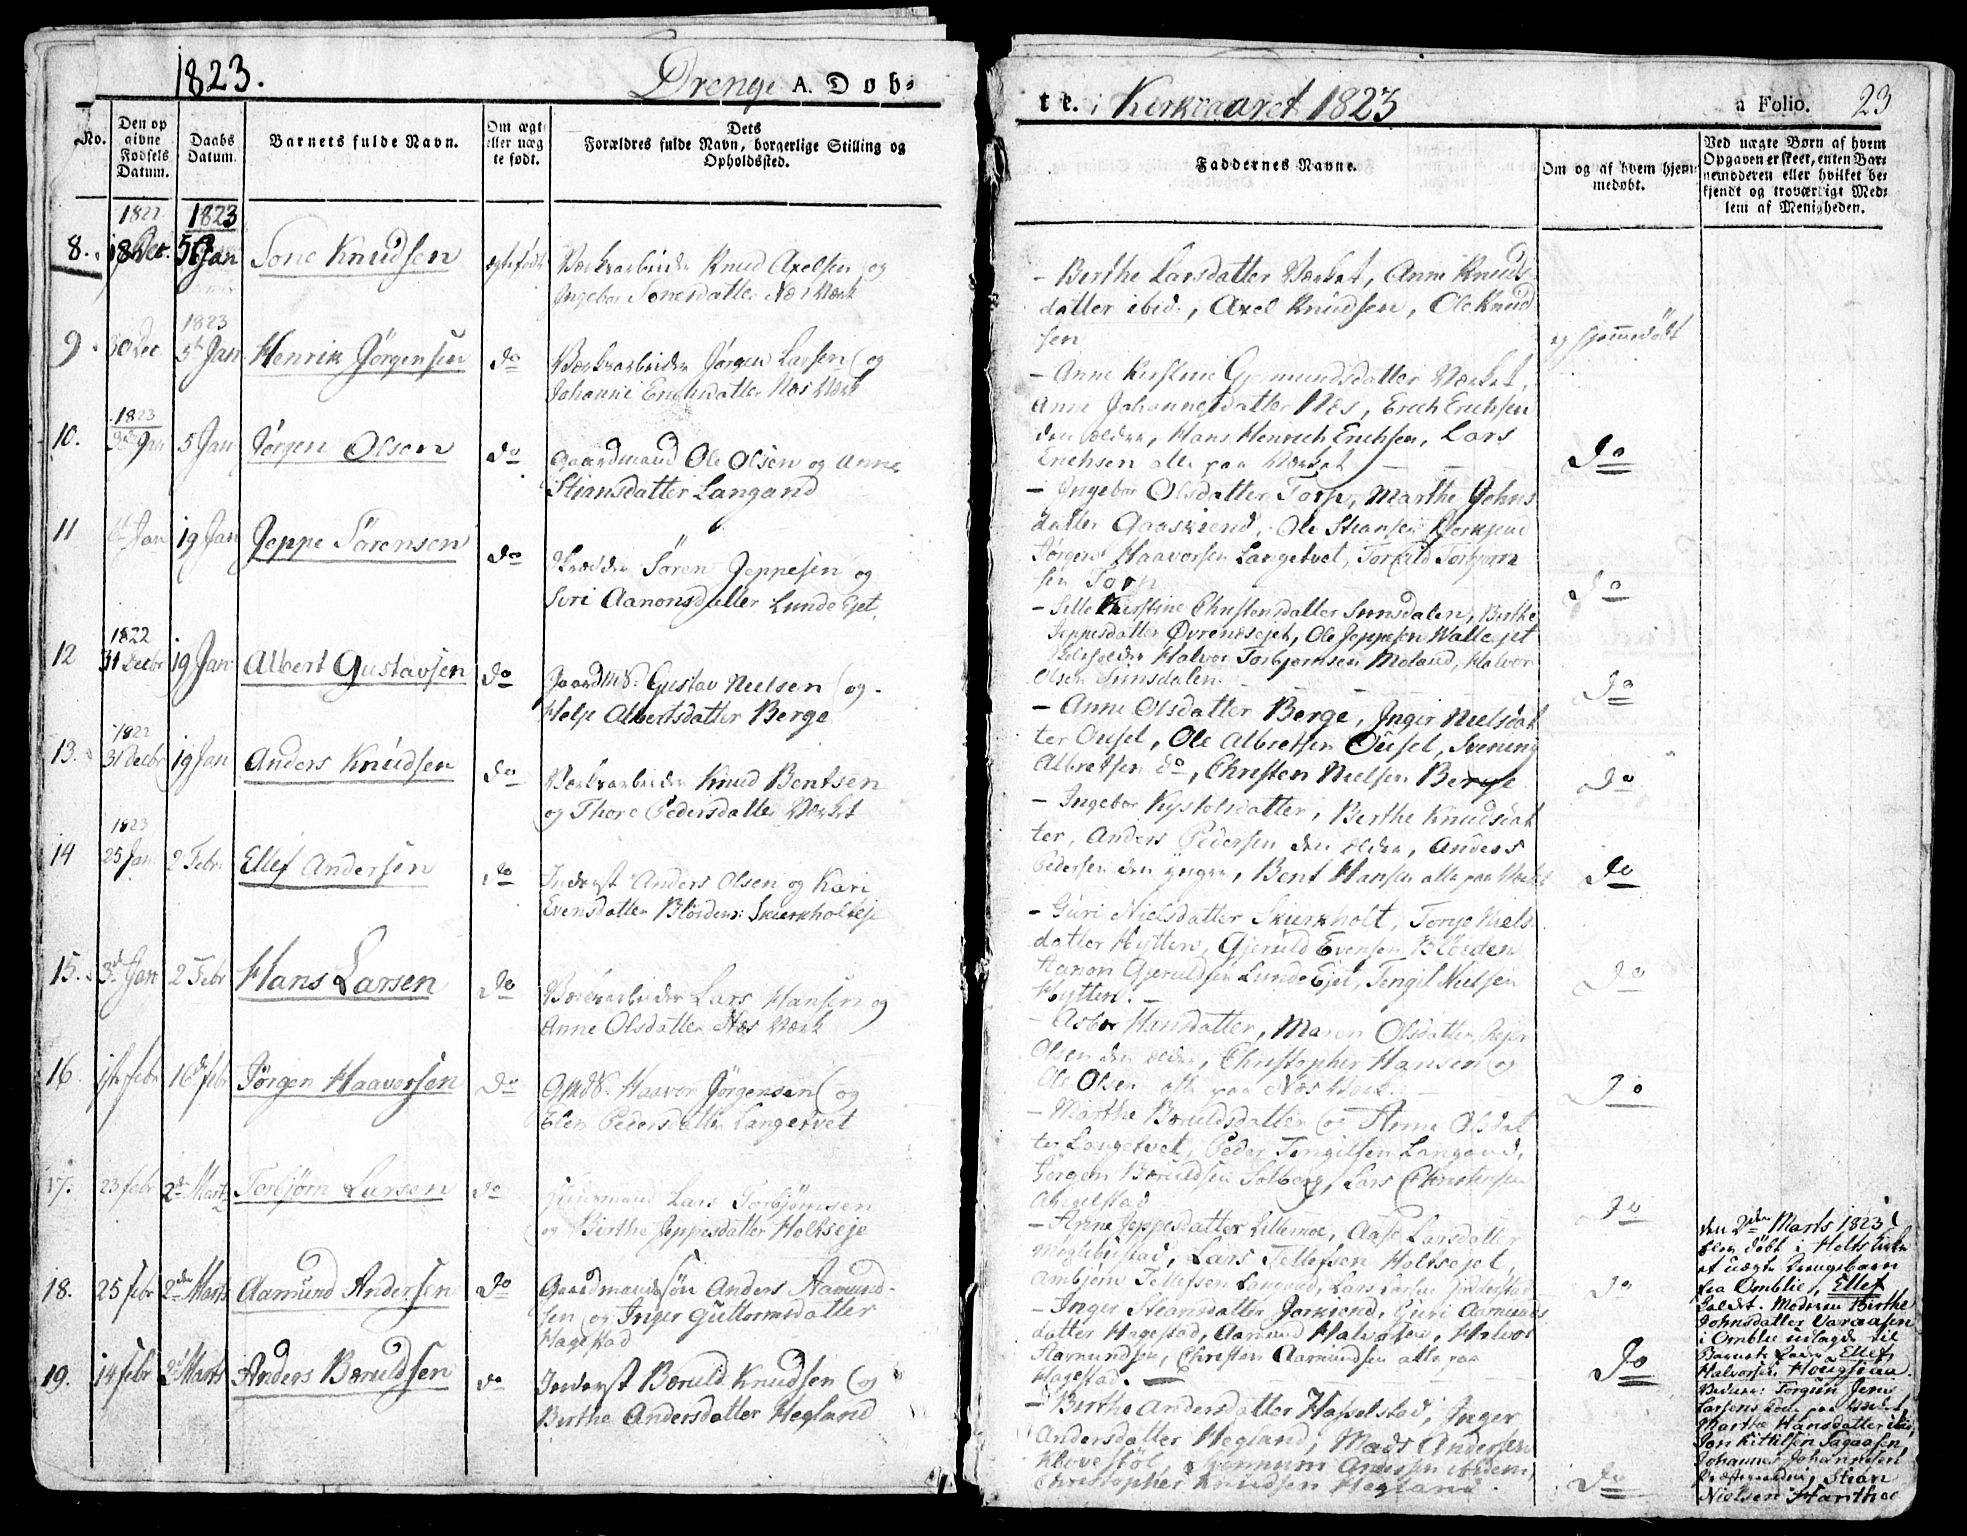 1823.
Drenge A. Døb-
No.
Den op
givne
Fødsels
Datum.
Daabs
Datum.
Barnets fulde Navn.
Om ægte
eller uæg
te født.
Dets
Forældres fulde Navn, borgerlige Stilling og
Opholdssted.
1822 1823
8. 18 Dec. 5 Jan Tone Knudsen ægtefødt Værksarbeider Knud Axelsen og
Ingebor Tonesdatter Næs Værk
1823
9. 30 Dec 5te Jan Henrik Jørgensen do Værksarbeider Jørgen Larsen og
Johanne Erichsdatter Næs Værk
1823
10. Jan 5 Jan Jørgen Olsen do Gaardmand Ole Olsen og Anne
Stiansdatter Langand
11 Jan 19 Jan Jeppe Sörensen do Skrædder Sören Jeppesen og
Siri Aanonsdatter Lunde Ejet.
1822
12 31 Decbr 19 Jan Albert Gustavsen do Gaardmd. Gustav Nielsen og
Helje Albertsdatter Berge
1822
13. 31 Decbr 19 Jan Anders Knudsen do Værksarbeider Knud Bentsen
og Thore Pedersdatter Værket
1823
14 25 Jan 2 Febr. Ellef Andersen do Inderst Anders Olsen og Kari
Evensdatter Blörden: Skierkholteje
15. 3d Jan 2 Febr Hans Larsen do Værksarbeider Lars Hansen og
Anne Olsdatter Næs Værk
16. 1ste febr 16d febr Jörgen Haavorsen do Gmd. Haavor Jørgensen og
Elen Pedersdatter Langetvet
17. 23 febr 2d Marts Torbjørn Larsen do Huusmand Lars Torbjørnsen
og Birthe Jeppesdatter Holtseje
18. 25 febr 2den Marts Aamund Andersen do Gaardmandssøn Anders Aamund-
sen og Inger Guttormsdatter
Hagestad
19. 14 febr 2d Marts Anders Boruldsen do Inderst Boruld Knudsen og
Birthe Andersdatter Hegland
te. i Kirkeaaret 1823
a Folio. 23
Faddernes Navne.
Om og af hvem hjem
medøbt.
Ved uægte Børn af hvem
Opgaven er skeet, enten Bar-
nemoderen eller hvilket be-
kjendt og troværdigt Med-
lem af Menigheden.
- Berthe Larsdatter Værket, Anne Knuds
datter ibid., Axel Knudsen, Ole Knud
sen
ej hjemmedöbt
- Anne Kirstine Gjermundsdatter Værket,
Anne Johannesdatter Næs, Erich Erichsen
den ældre, Hans Henrich Erichsen, Lars
Erichsen alle paa Værket
do
- Ingebor Olsdatter Torp, Marthe Johns
datter Gaaskiend, Ole Stiansen
Jørgen Haavorsen Langetvet, Torkild Torbjørn
sen Torp
do
- Sille Kirstine Christensdatter Simsdalen, Birthe
Jeppesdatter Øvrenæsejet, Ole Jeppesen Wallejet
Halvor Torbjørnsen Moland, Halvor
Olsen Simsdalen.
do
- Anne Olsdatter Berge, Inger Nielsdat
ter Ousel, Ole Albretsen Ousel, Svening
Albretsen do, Christen Nielsen Berge
do
- Ingebor Kystolsdatter, Berthe Knudsdat
ter, Anders Pedersen den ældre, Anders
Pedersen den yngre, Bent Hansen alle paa Værket
do
- Guri Nielsdatter Skierkholt, Torje Niels
datter Hytten, Gjeruld Evensen Blörden
Aanon Gjeruldsen Lunde Ejet, Tengil Nielsen
Hytten.
do
- Asbor Hansdatter, Maren Olsdatter, Rejer
Olsen den ældre, Christopher Hansen og
Ole Olsen alle paa Næs Værk.
do
- Marthe Boruldsdatter og Anne Olsdat
ter Langetvet, Peder Tengilsen Langand,
Jørgen Boruldsen Solberg, Lars Christensen
Angelstad
do
- Anne Jeppesdatter Lillemoe, Aase Larsdatter
Møglebustad, Lars Tellefsen Holtsejet,
Ambjørn Tellefsen Langand, Lars Larsen
do
- Inger Stiansdatter Gorkiend, Guri Aamunds
datter Hagestad, Aamund Halvorsen, Halvor
Aamundsen, Christen Aamundsen alle paa
Hagestad.
do
- Birthe Andersdatter Hasselstad, Inger
Andersdatter Hegland, Mads Andersen
Klovestöl, Andersen ibidem,
Christopher Knudsen Hegland.
do
den 2den Marts 1823
blev døbt i Holts Kirke
et uægte Drengebarn
fra Omblie, Ellef
kaldet. Moderen Birthe
Johnsdatter Varaasen
i Omblie udlagde til
Barnets Fader Ellef
Halvorsen
Faddere: Torgun Jens
Larsens Kone paa Værket,
Marthe Hansdatter ibid,
Jon Kittilsen Sagaasen,
Johannes Johannesen
Stian
Nielsen